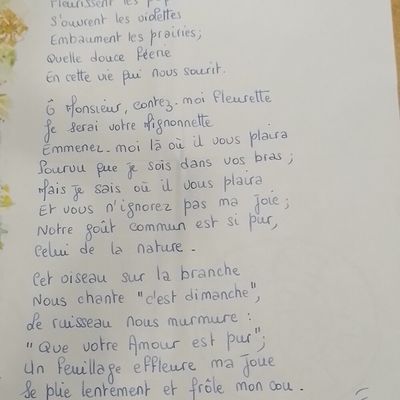 Fleurissent les
S'ouvrent les violettes
Embaument les prairies;
Quelle douce féerie
En cette vie qui nous sourit.
Ô Monsieur, contez-moi fleurette
Je serai votre Mignonnette
Emmenez-moi là où il vous plaira
Pourvu que je sois dans vos bras;
Mais je sais où il vous plaira
Et vous n'ignorez pas ma joie;
Notre goût commun est si pur,
Celui de la nature.
Cet oiseau sur la branche
Nous chante "c'est dimanche",
Le ruisseau nous murmure:
"Que votre Amour est pur";
Un feuillage effleure ma joue
Se plie lentement et frôle mon cou.